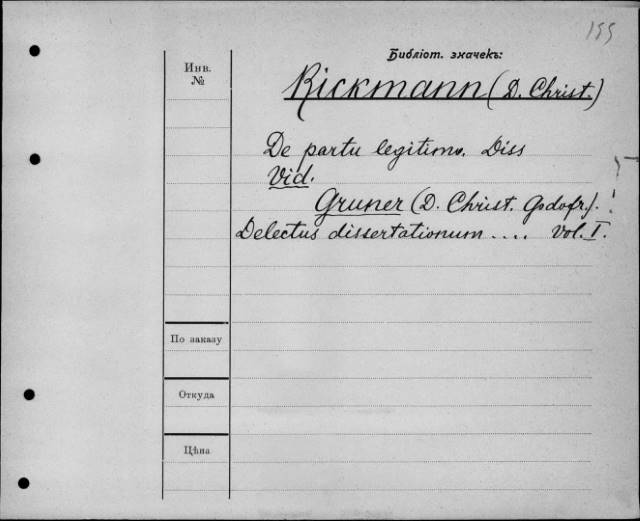 199
Библіот. значекъ:
Инв.
№
Rickmann (D. Christ.)
De partu legitimo. Diss
Vid.
Gruner (D. Christ. Godofr.).
Delectus dissertationum .... Vol. I.
По заказу
Откуда
Цѣна